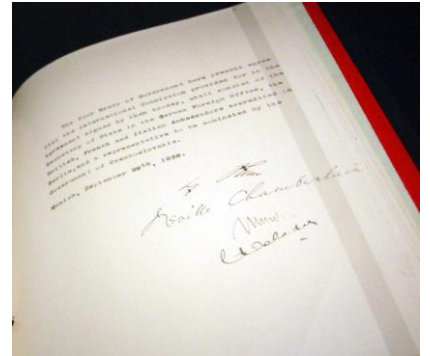 The four Heads of Government here present agree
that the International Commission provided for in the
agreement signed by them to-day, shall consist of the
Secretary of State in the German Foreign Office, the
British, French and Italian Ambassadors accredited in
Berlin, and a representative to be nominated by the
Government of Czechoslovakia.
Munich, September 29th, 1938.
Neville Chamberlain